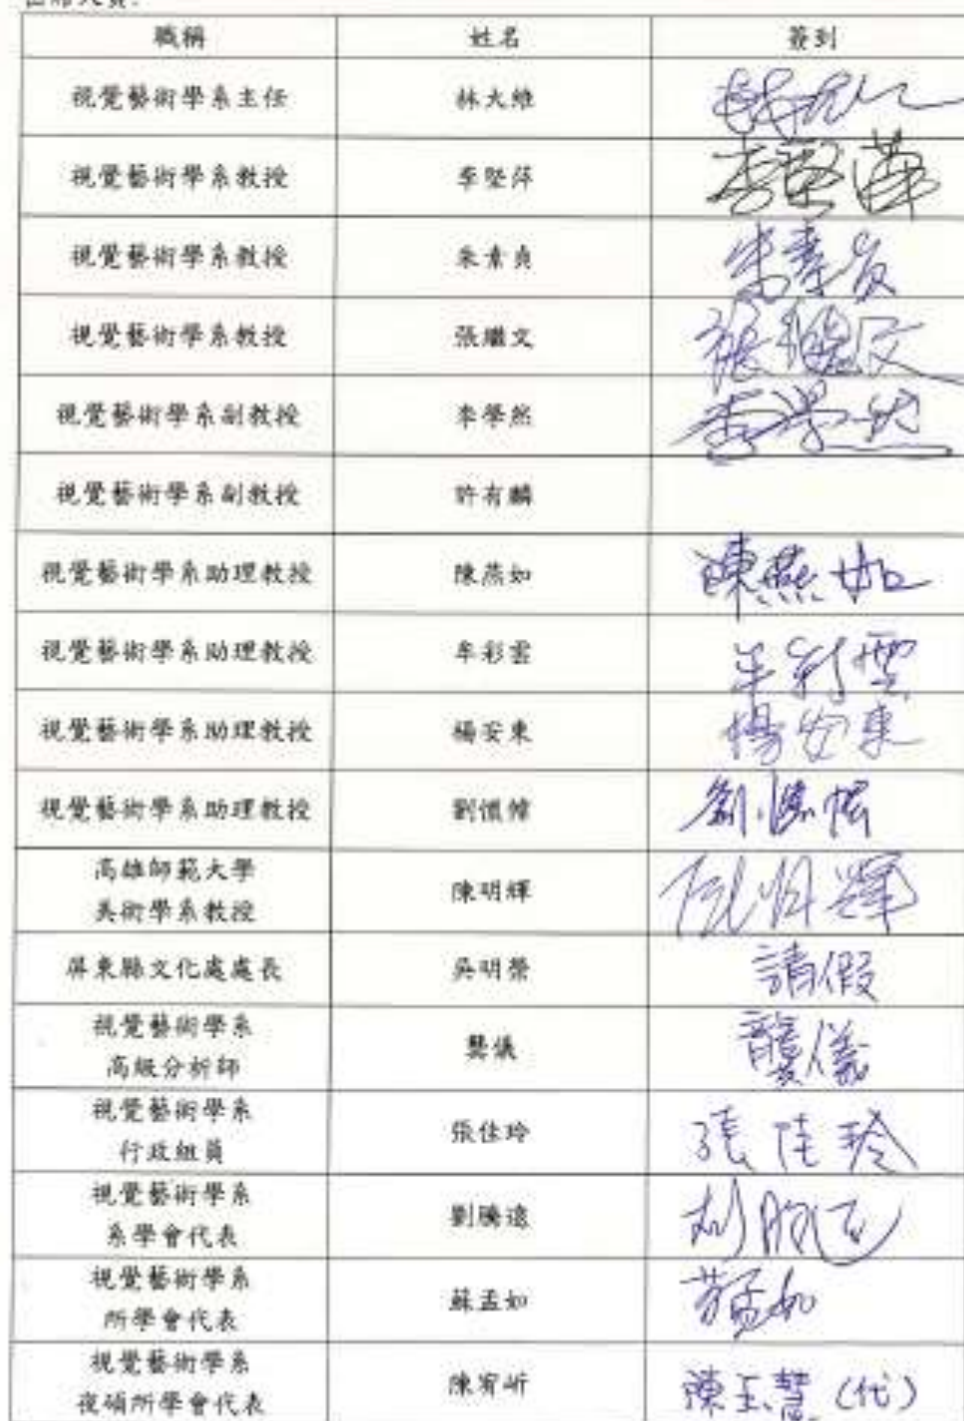 出席人員:
職稱 姓名 簽到
視覺藝術學系主任 林大維
視覺藝術學系教授 李堅萍 李堅萍
視覺藝術學系教授 朱素貞 朱素貞
視覺藝術學系教授 張繼文 張繼文
視覺藝術學系副教授 李學然 李學然
視覺藝術學系副教授 許有麟
視覺藝術學系助理教授 陳燕如 陳燕如
視覺藝術學系助理教授 牟彩雲 牟彩雲
視覺藝術學系助理教授 楊安東 楊安東
視覺藝術學系助理教授 劉懷幃 劉懷幃
高雄師範大學
美術學系教授 陳明輝 陳明輝
屏東縣文化處處長 吳明榮 請假
視覺藝術學系
高級分析師 龔儀 龔儀
視覺藝術學系
行政組員 張佳玲 張佳玲
視覺藝術學系
系學會代表 劉騰遠
視覺藝術學系
所學會代表 蘇孟如 蘇孟如
視覺藝術學系
夜碩所學會代表 陳宥岓 陳玉慧(代)